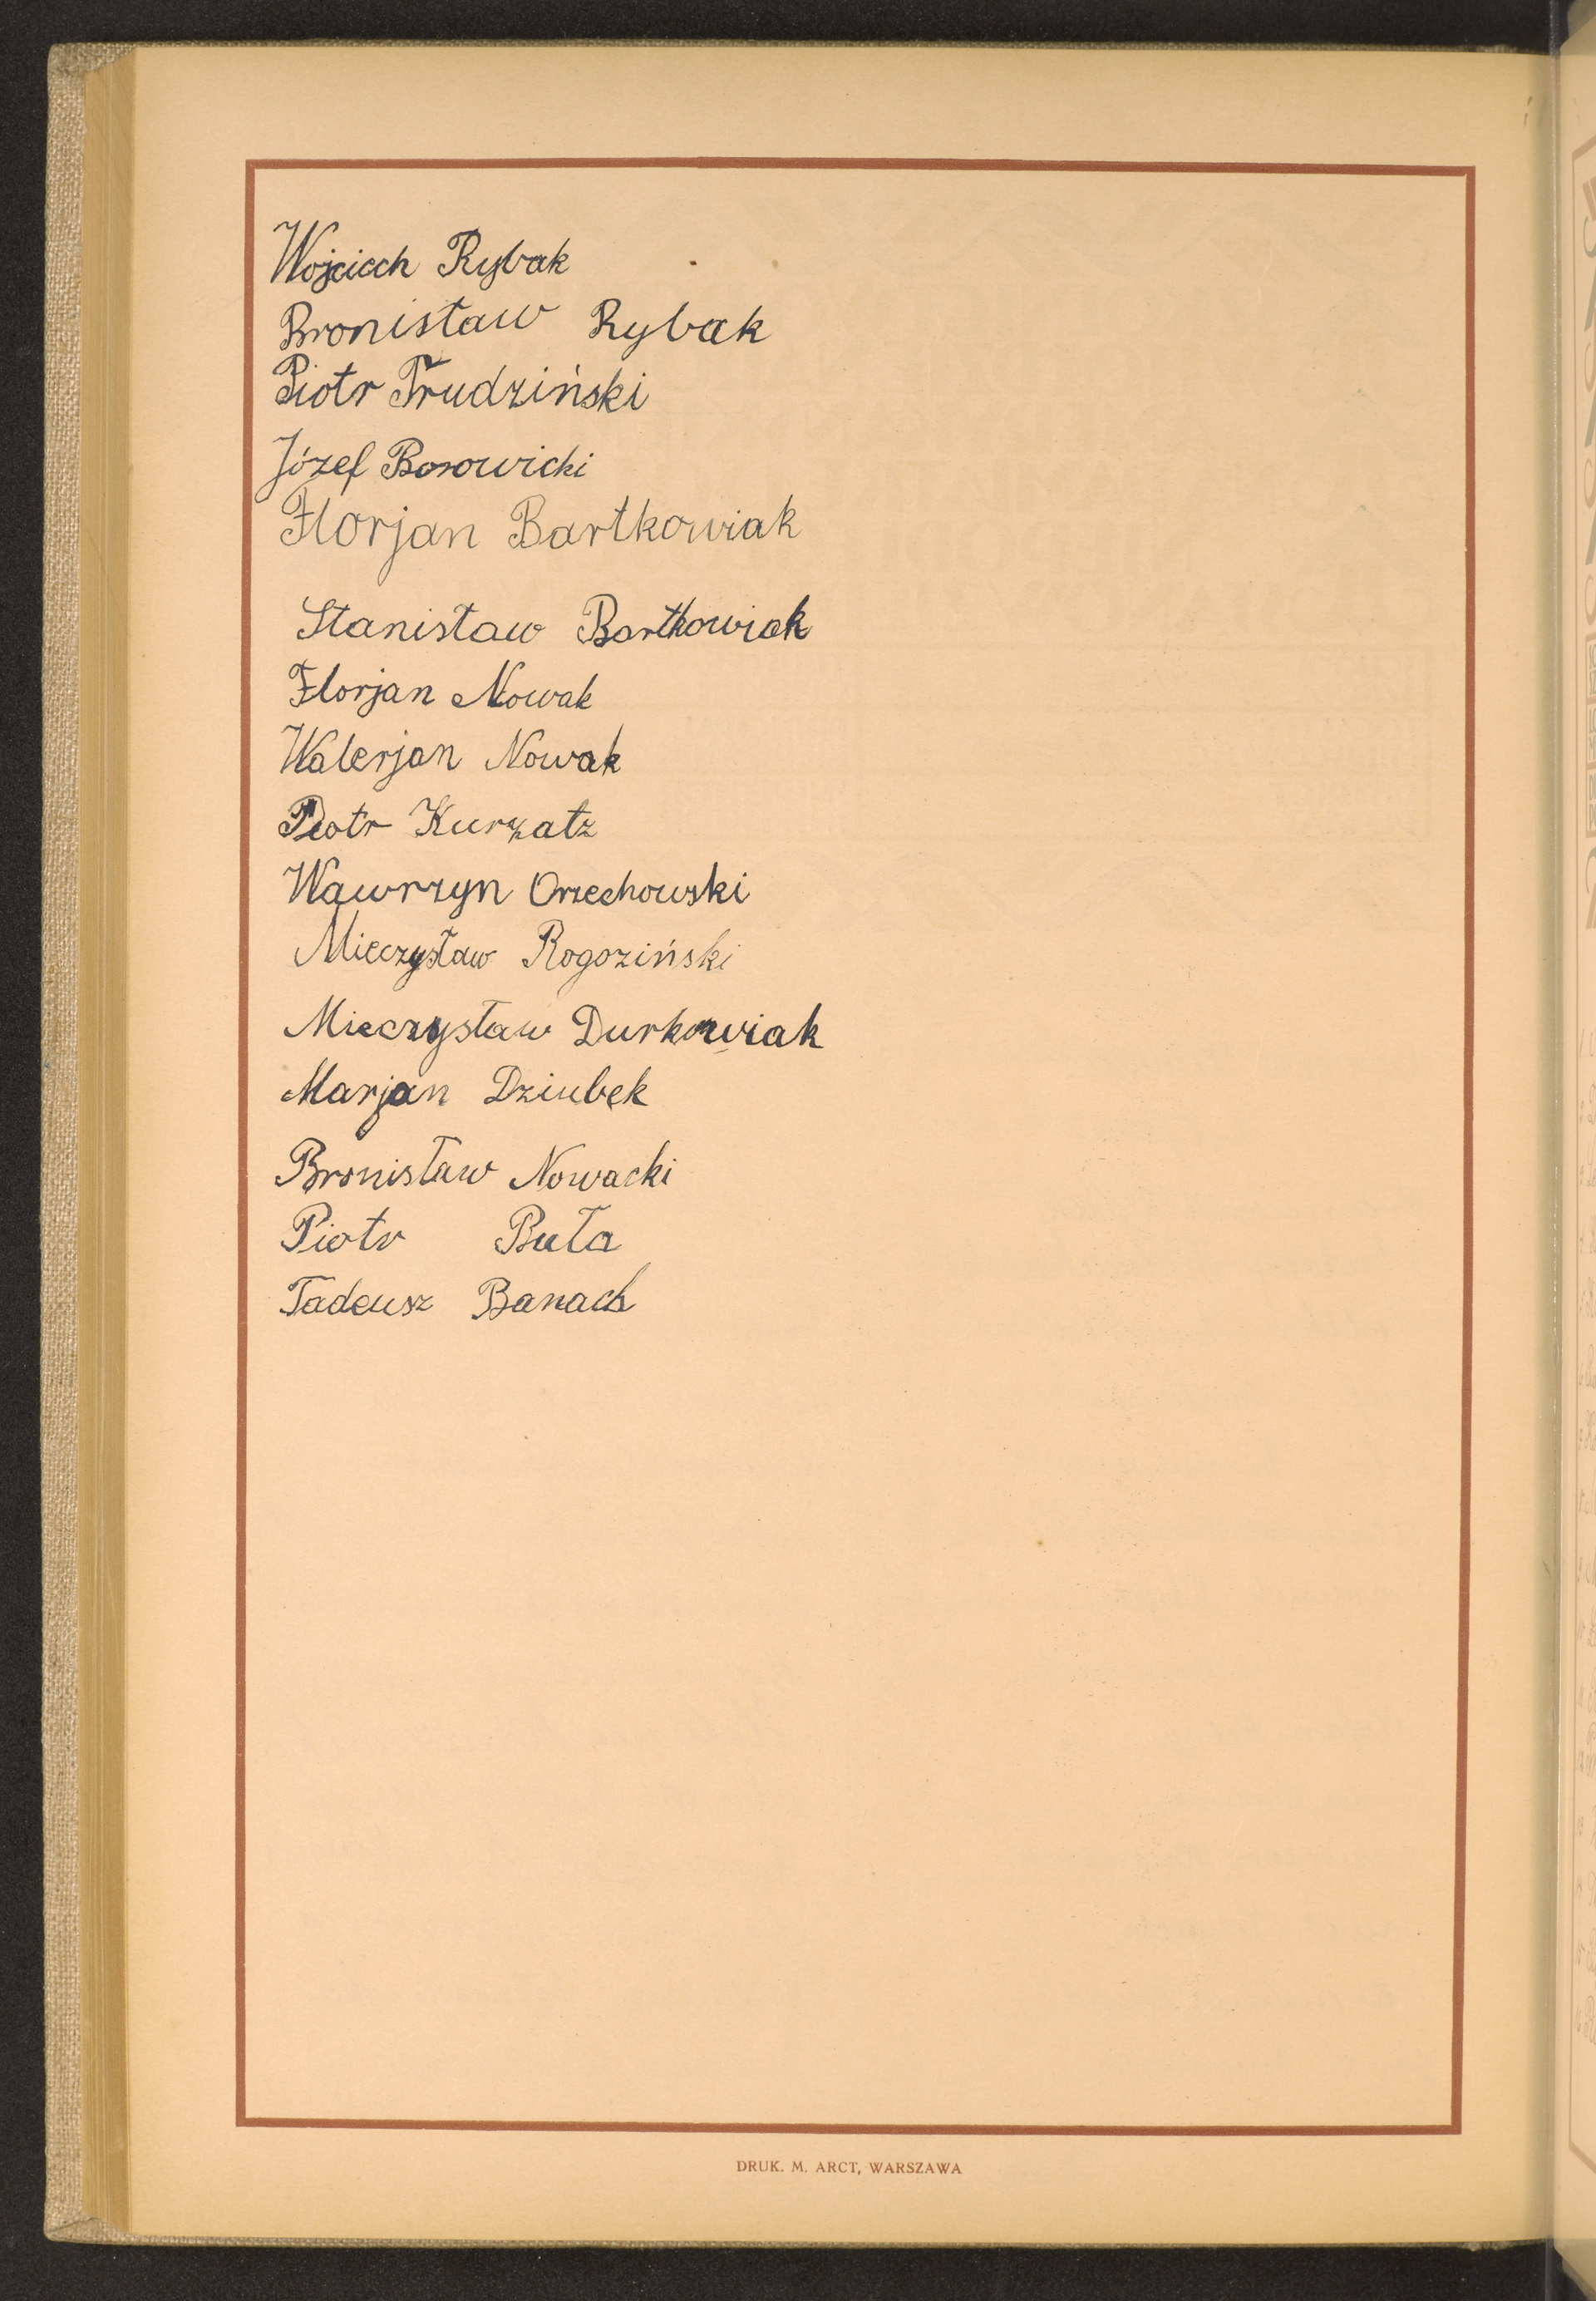 Wojciech Rybak
Bronisław Rybak
Piotr Trudziński
Józef Borowicki
Florjan Bartkowiak
Stanisław Bartkowiak
Florjan Nowak
Walerjan Nowak
Piotr Kurzatz
Wawrzyn Orzechowski
Mieczysław Rogoziński
Mieczysław Durkowiak
Marjan Dziubek
Bronisław Nowacki
Piotr Buła
Tadeusz Banach
DRUK. M. ARCT, WARSZAWA